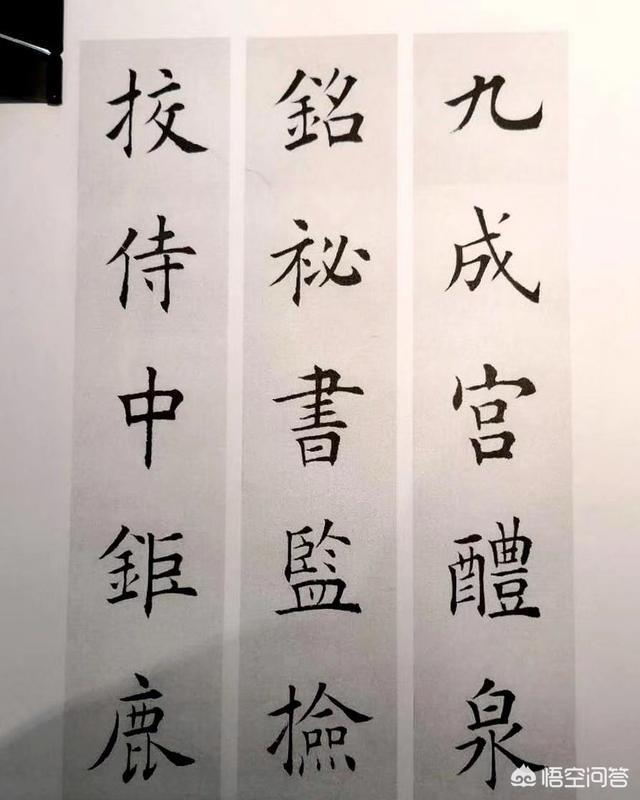 九成宮醴泉
銘祕書監撿
挍侍中鉅鹿
悟空问答